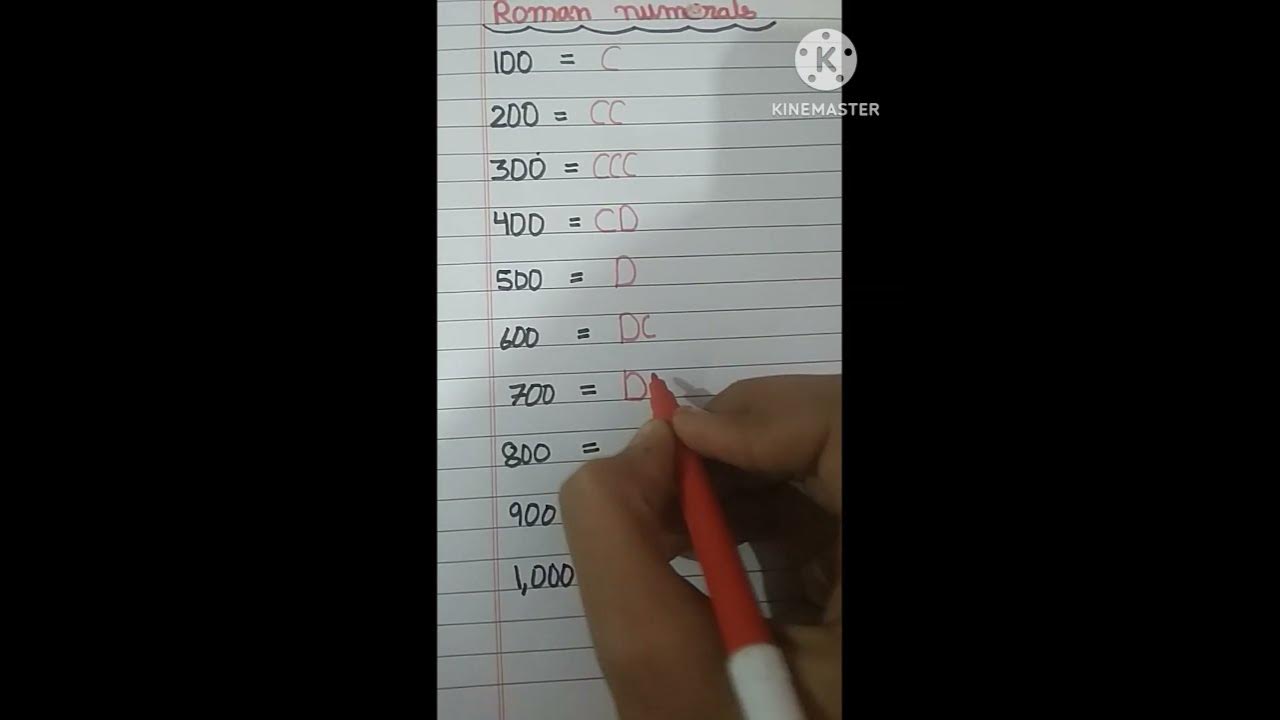 Roman numerals
100 = C
200 = CC
300 = CCC
400 = CD
500 = D
600 = DC
700 = D
800 =
900
1,000
K
KINEMASTER